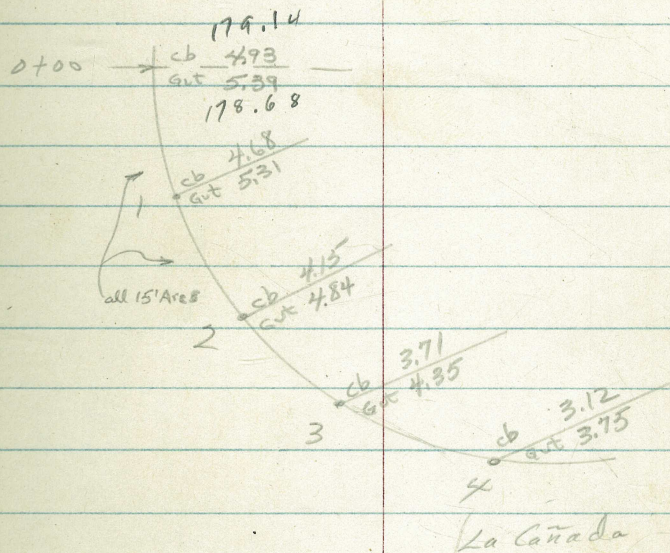 179.14
0+00 cb 4.93
Gut 5.39
178.68
cb 4.68
Gut 5.31
1
all 15' Arcs
cb 4.15
Gut 4.84
2
cb 3.71
Gut 4.35
3
cb 3.12
Gut 3.75
4
La Cañada